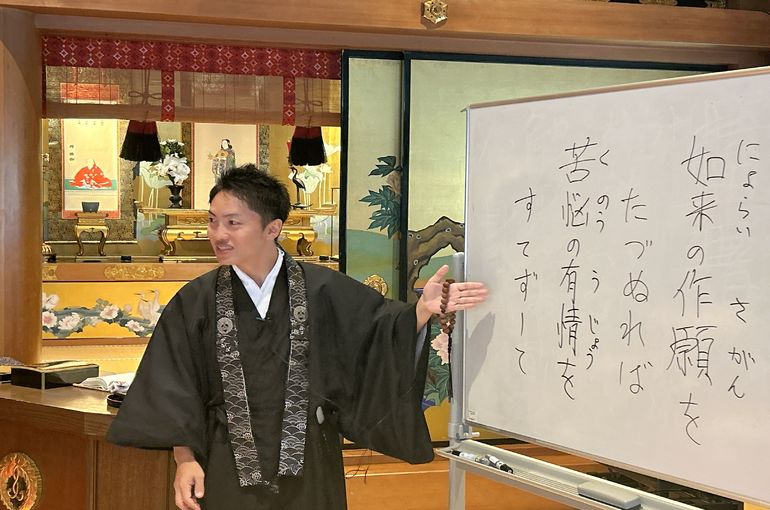 にょらい さがん
如来の作願を
たづぬれば
くのう うじょう
苦悩の有情を
すてずーて